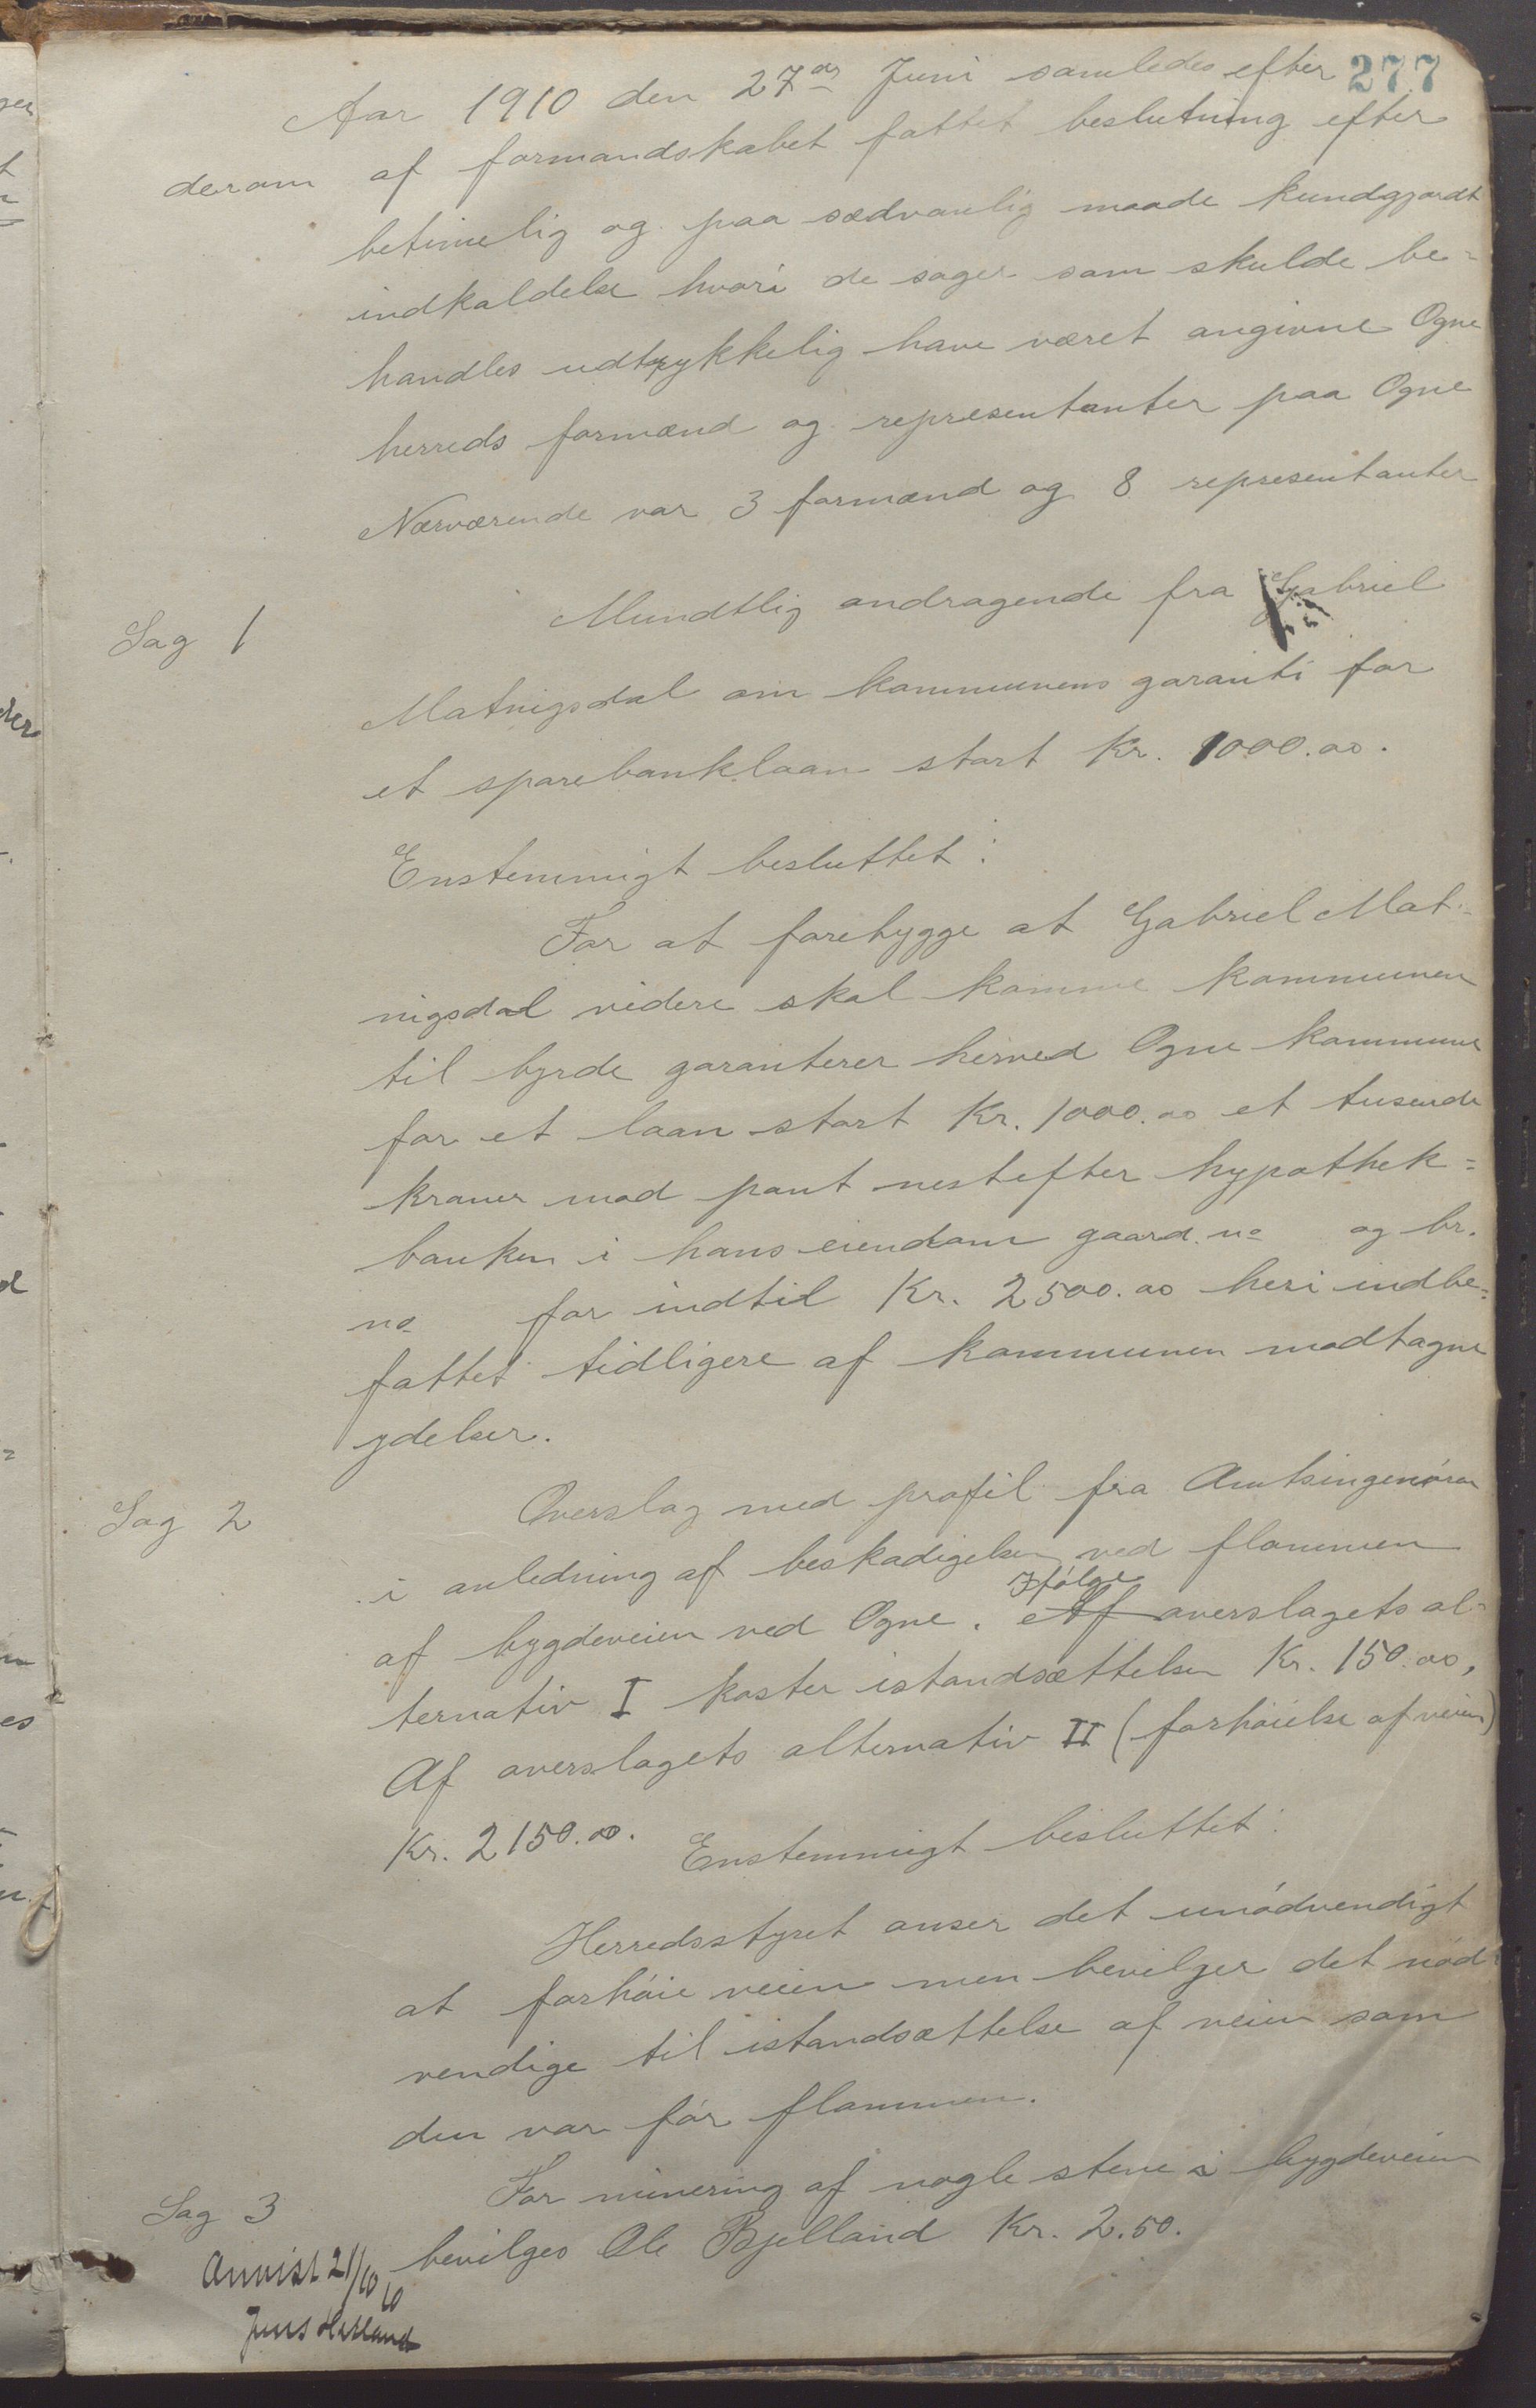 277
Aar 1910 den 27de Juni samledes efter
derom af formandskabet fattet beslutning efter
betimelig og paa sædvanlig maade kundgjordt
indkaldelse hvori de sager som skulde be=
handles udtrykkelig have været angivne Ogne
herreds formænd og representanter paa Ogne
Nærværende var 3 formænd og 8 representanter
Sag 1
Mundtlig andragende fra Gabriel
Matnigsdal om kommunens garanti for
et sparebanklaan stort Kr. 1000.00.
Enstemmigt besluttet:
For at forebygge at Gabriel Mat=
nigsdal videre skal komme kommunen
til byrde garanterer herved Ogne kommune
for et laan stort Kr. 1000.00 et tusende
kroner mod pant nestefter hypothek=
banken i hans eiendom gaard. no og br.
no for indtil Kr. 2500.00 heri indbe=
fattet tidligere af kommunen modtagne
ydelser.
Sag 2
Overslag med profil fra Amtsingeniøren
i anledning af beskadigelsen ved flommen
af bygdeveien ved Ogne. Ifølge Af overslagets al=
ternativ I koster istandsættelsen Kr. 150.00,
Af overslagets alternativ II (forhøielse af veien)
Kr. 2150.00. Enstemmigt besluttet:
Herredsstyret anser det unødvendigt
at forhøie veien men bevilger det nød=
vendige til istandsættelse af veien som
den var før flommen.
Sag 3
For minering af nogle stene i bygdeveien
bevilges Ole Bjelland Kr. 2.50.
Anvist 21/10 10
Jens Helland